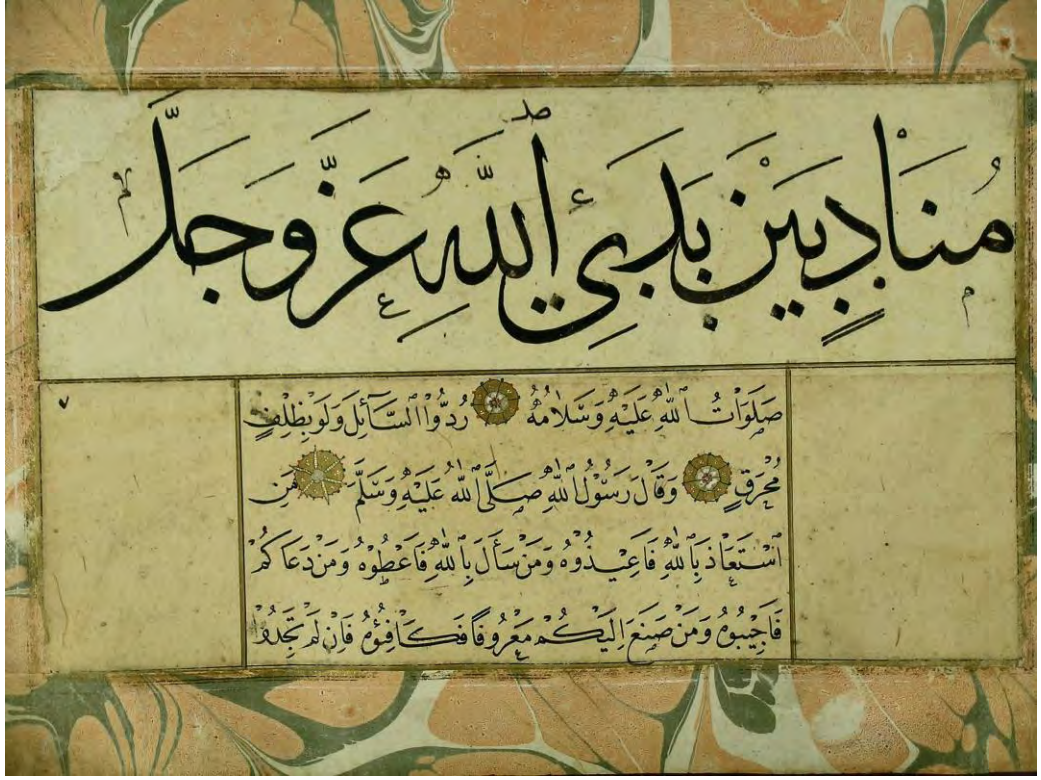 مُنَادِيَيْنِ بَيْنَ يَدَيِ ٱللّٰهِ عَزَّ وَجَلَّ
صَلَوَاتُ ٱللّٰهِ عَلَيْهِ وَسَلَامُهُ رُدُّوا ٱلسَّآئِلَ وَلَوْ بِظِلْفٍ
مُحْرَقٍ وَقَالَ رَسُوْلُ ٱللّٰهِ صَلَّى ٱللّٰهُ عَلَيْهِ وَسَلَّمَ مَنِ
ٱسْتَعَاذَ بِٱللّٰهِ فَاَعِيْذُوْهُ وَمَنْ سَأَلَ بِٱللّٰهِ فَاَعْطُوْهُ وَمَنْ دَعَاكُمْ
فَاَجِيْبُوْهُ وَمَنْ صَنَعَ اِلَيْكُمْ مَعْرُوْفًا فَكَافِئُوْهُ فَاِنْ لَمْ تَجِدُوْا